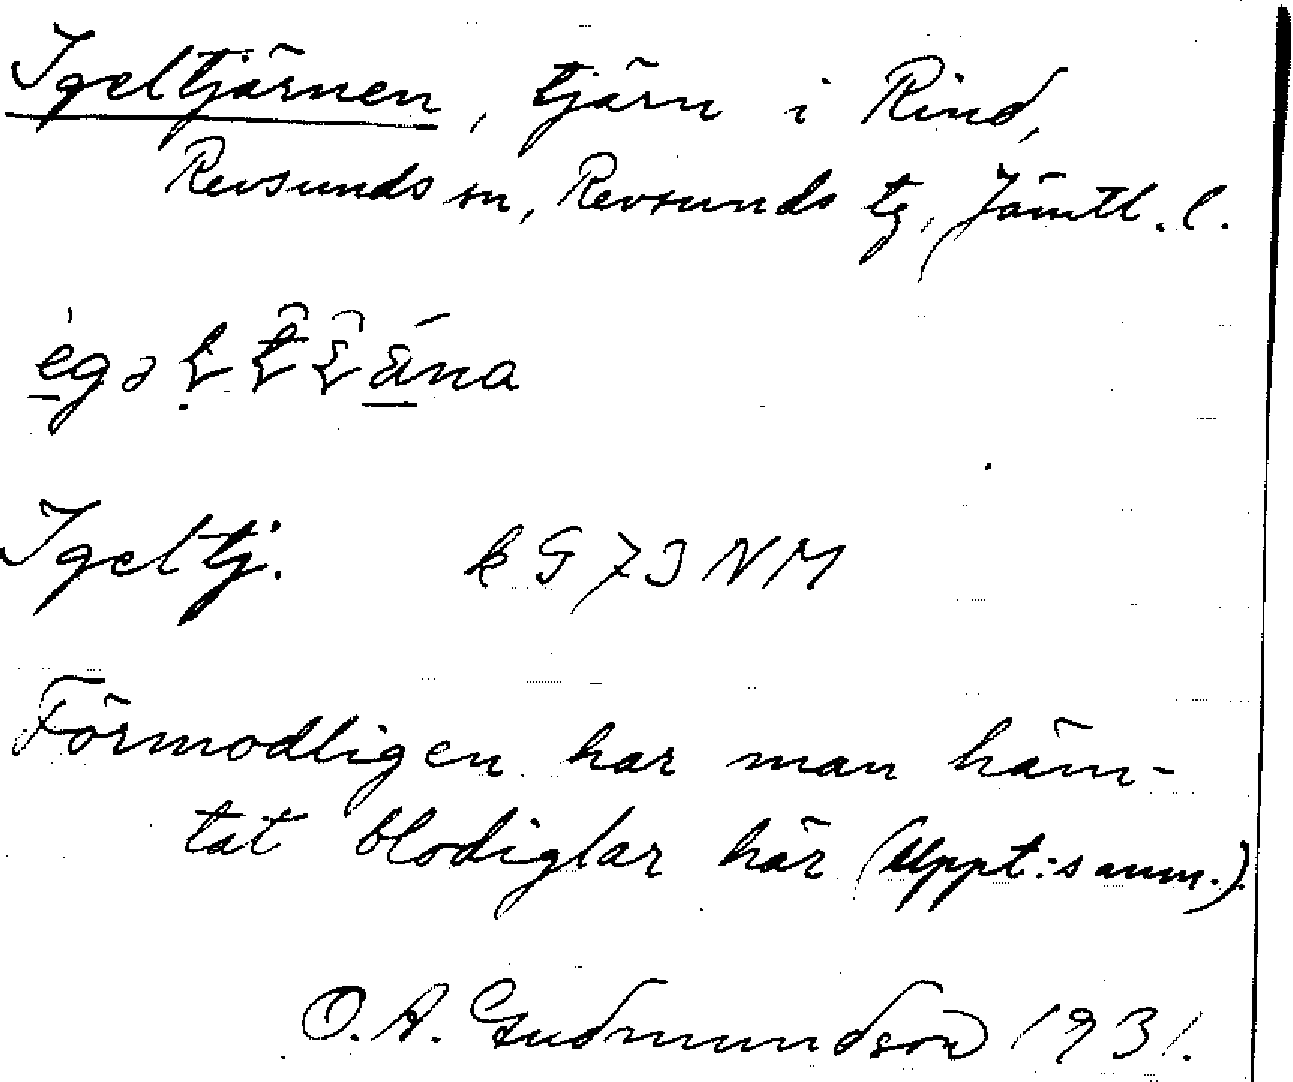 Igeltjärnen, tjärn i Rind,
Revsunds sn, Revsunds tg, Jämtl. l.
Igeltj. kG73NM
Förmodligen har man häm-
tat blodiglar här (Uppt:s anm.).
O. A. Gudmundson 1931.